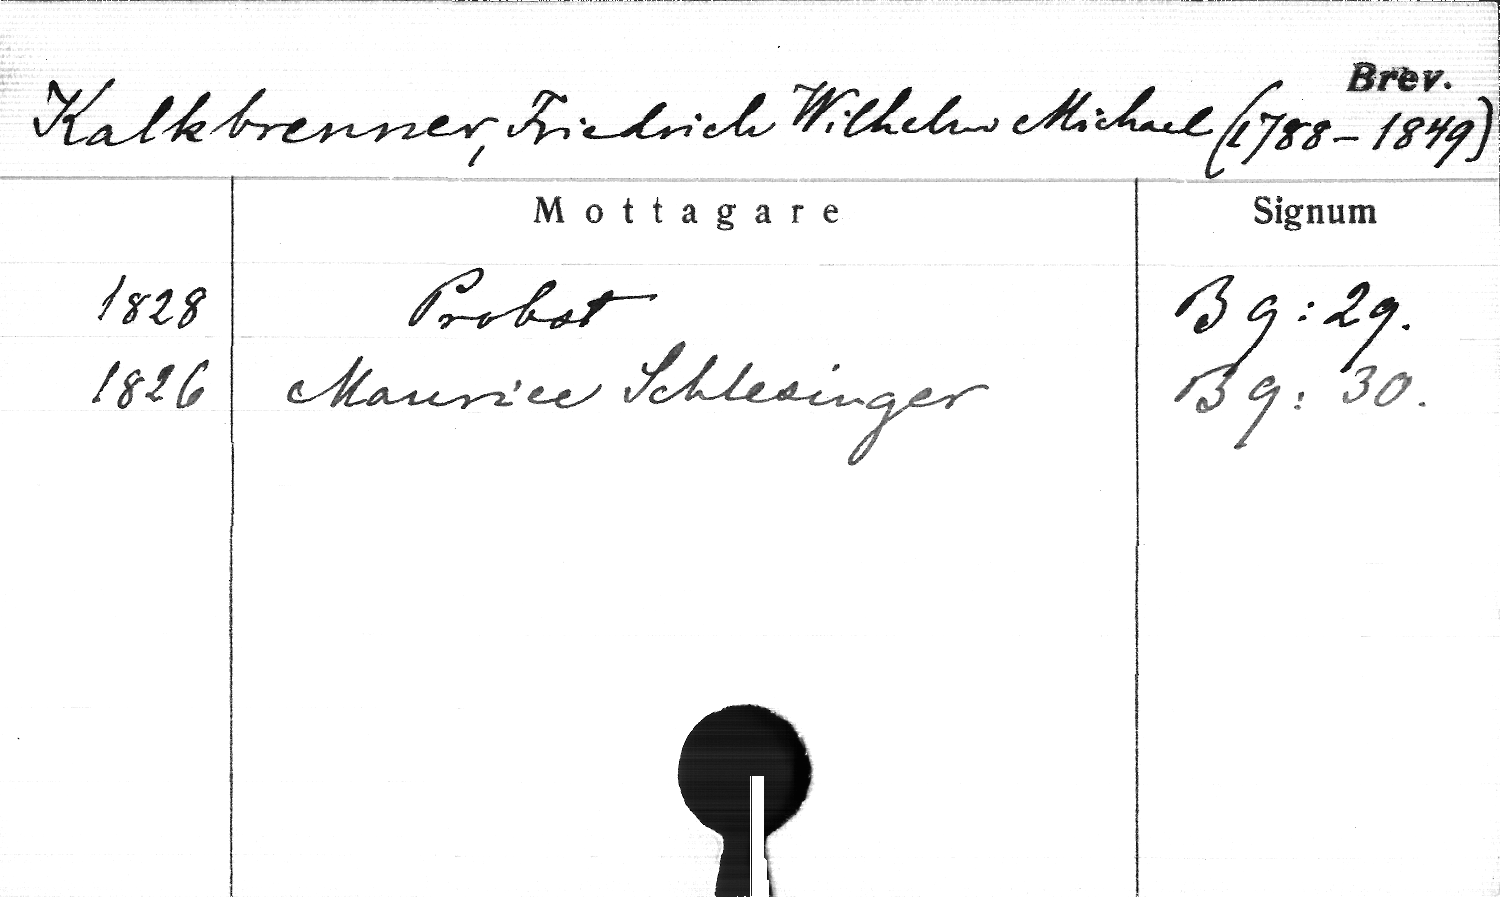 Brev.
Kalkbrenner, Friedrich Wilhelm Michael (1788-1849)
Mottagare Signum
1828 Probst Bg: 29.
1826 Maurice Schlesinger Bg: 30.